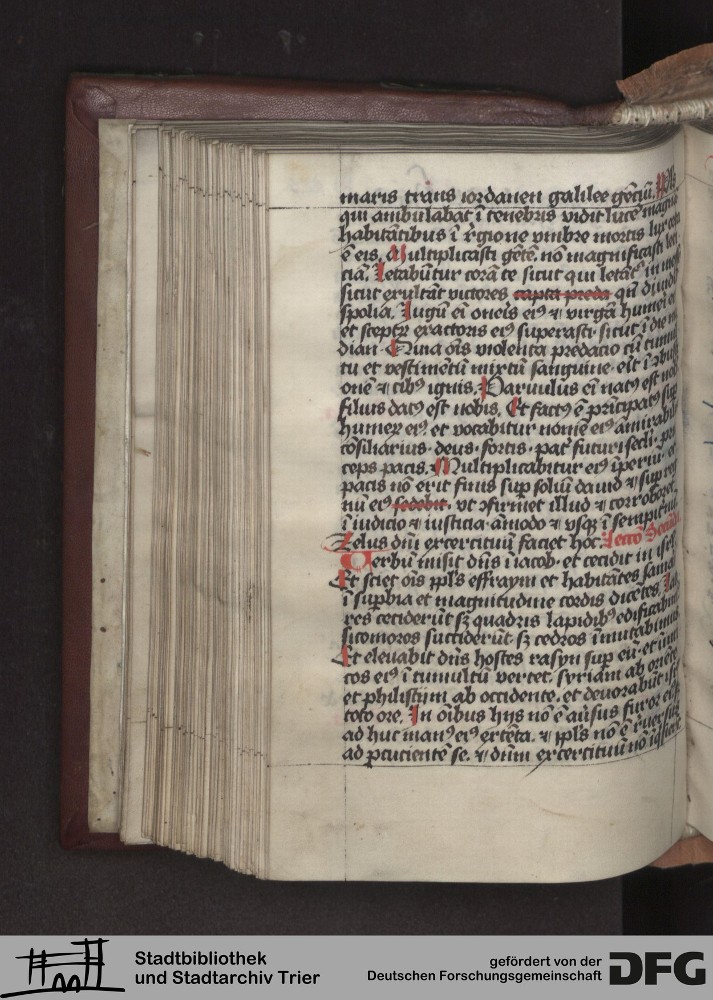 maris trans iordanen galilee gēciū. Pℓs
qui ambulabat ī tenebris vidit lucē magnā
habitātibus ī r̄gione vmbre mortis lux orta
ē eis. Multiplicasti gētē. nō magnificasti leti
ciā. Letabūtur corā te sicut qui letāt in messe
sicut exultāt victores capta preda qn̄ diuidūt
spolia. Iugū eī oneis eiꝰ ⁊ virgā humeri eiꝰ
et sceptꝝ exactoris eiꝰ superasti. sicut ī die ma
dian. Quia oīs violenta predacio cū tumul
tu et vestimētū mixtū sanguine. eit ī ɔbusti
onē ⁊ cibꝰ ignis. Paruulus eī natꝰ est nob
filius datꝰ est nobis. Et factꝰ ē prīcipatꝰ sup
humeꝝ eiꝰ. et vocabitur nomē eiꝰ amirabil
cōsiliarius. deus. fortis. pat̄ futuri sec̄li. prī
ceps pacis. Multiplicabitur eiꝰ īperiū. et
pacis nō erit finis sup soliū dauid ⁊ sup reg
nū eiꝰ sedebit. vt ɔfirmet illud ⁊ corroboret
ī iudicio ⁊ iusticia. āmodo ⁊ vsqꝫ ī sempitnū.
Zelus dnī exercituū faciet hoc. lectō Secūda
Verbū misit dn̄s ī iacob. et cecidit in isrl̄.
Et sciet oīs ppl̄s effraym et habitātes samā
ī supbia et magnitudine cordis dicētes. Late
res cecider̄ūt sꝫ quadris lapidibꝰ edificabimꝰ
sicomoros succider̄ūt. sꝫ cedros īmutabimus
Et eleuabit dn̄s hostes rasyn sup eū. et inim
cos eiꝰ ī tumultū vertet. syriam ab oriēte
et philistijm ab occidente. et deuorabūt isrl̄
toto ore. In oībus hijs nō ē auīsus furor eiꝰ
ad huc manꝰ eiꝰ extēta. ⁊ ppl̄s nō ē r̄uersus
ad pcucientē se. ⁊ dnm exercituū nō īqsier̄t
Stadtbibliothek
und Stadtarchiv Trier
gefördert von der
Deutschen Forschungsgemeinschaft DFG